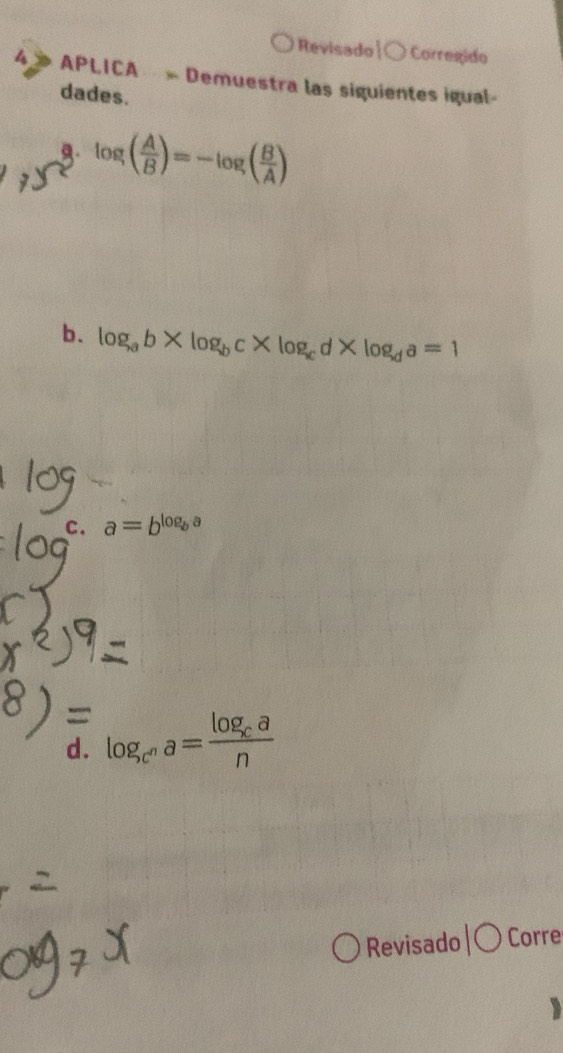 Revisado | Corregido
4 APLICA Demuestra las siguientes igual-
dades.
a. log(A/B) = -log(B/A)
b. logₐ b × log_b c × log_c d × log_d a = 1
log -
c. a = b^(log_b a)
-log
x²)⁹ =
8) =
d. log_(cⁿ) a = (log_c a)/n
=
og₇ x
Revisado | Corre